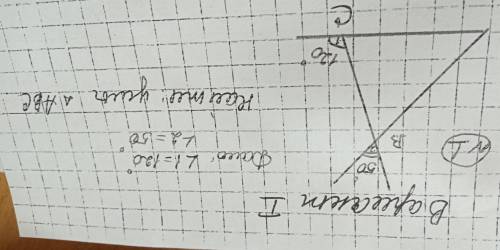 Вариант II
№1
Дано: ∠1=120°
∠2=50°
Найти: углы △ABC
C
120°
B
50°